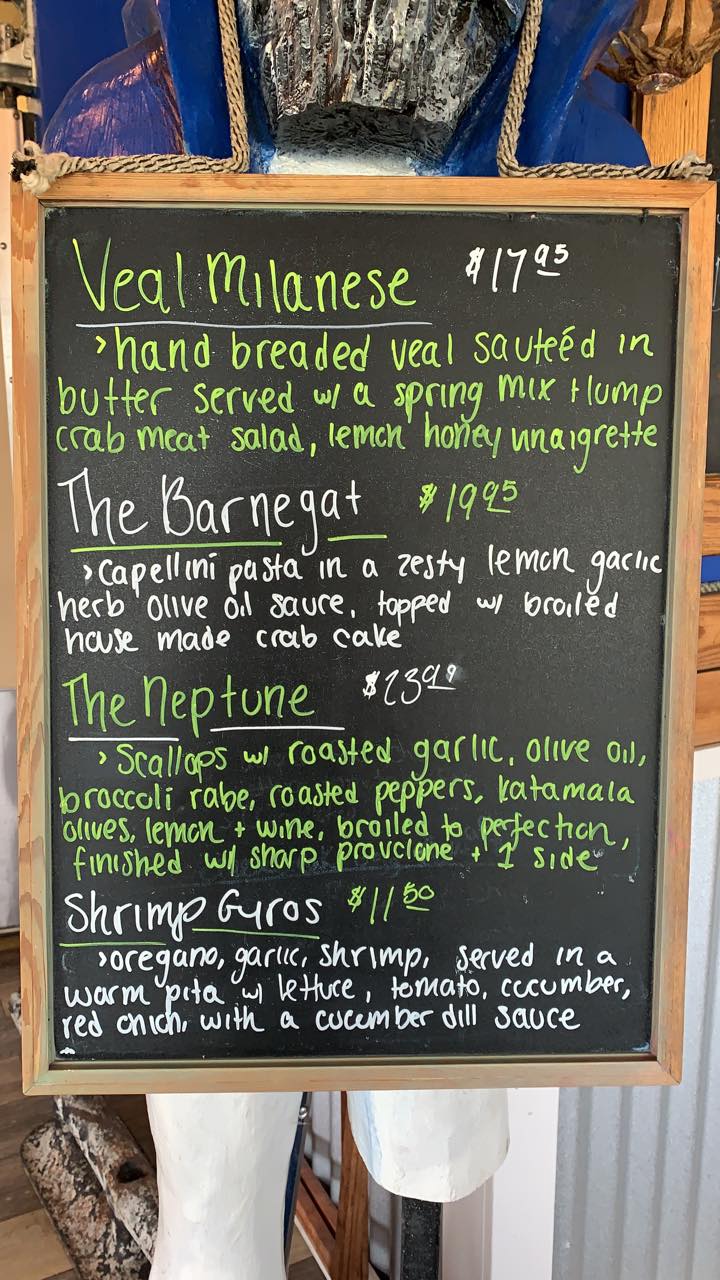 Veal Milanese $17.95
>hand breaded veal sauteéd in
butter served w/ a spring mix + lump
crab meat salad, lemon honey vinaigrette
The Barnegat $19.95
>capellini pasta in a zesty lemon garlic
herb olive oil sauce, topped w/ broiled
house made crab cake
The Neptune $23.99
>Scallops w/ roasted garlic, olive oil,
broccoli rabe, roasted peppers, katamala
olives, lemon + wine, broiled to perfection,
finished w/ sharp provclone + 1 side
Shrimp Gyros $11.50
>oregano, garlic, shrimp, served in a
warm pita w/ lettuce, tomato, cucumber,
red onion, with a cucumber dill sauce